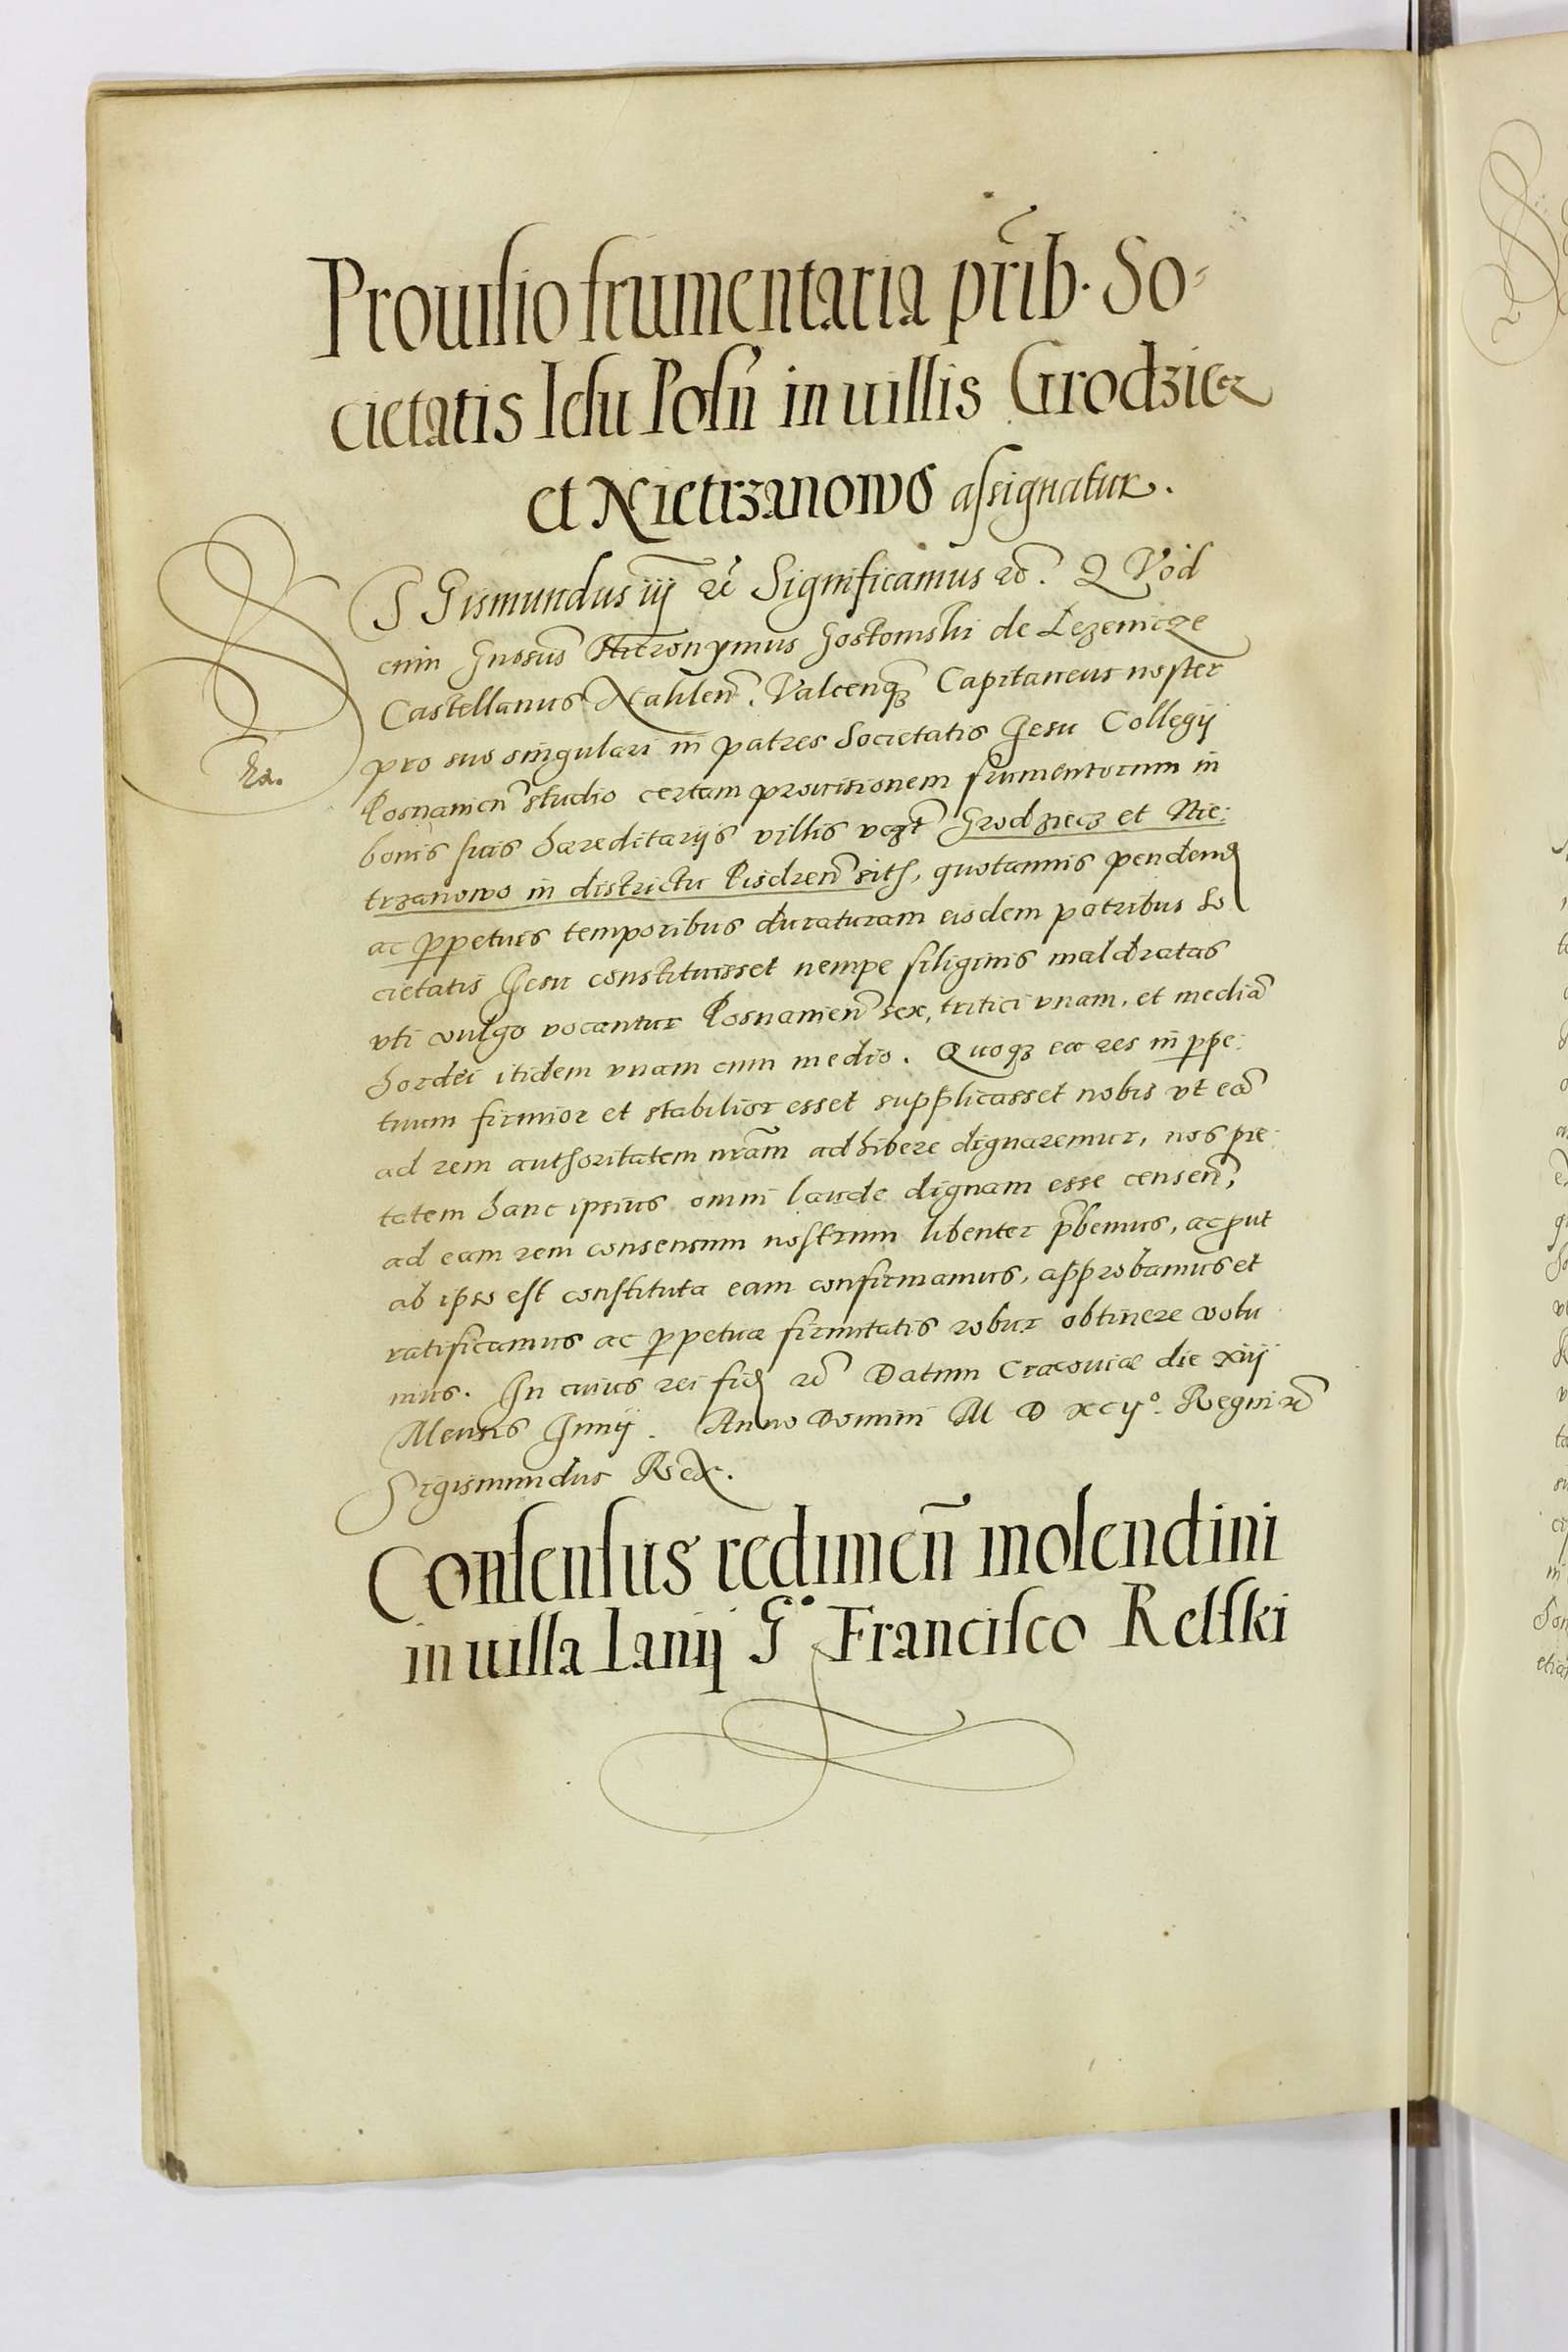 Prouisio frumentaria prib. So-
cietatis Iesu Posn in uillis Grodziecz
et Nietrzanowo assignatur.
SIGismundus iij etc Significamus etc. QVod
cum Gnosus Hieronymus Gostomski de Lezenicze
Castellanus Naklen. Valcenq3 Capitaneus noster
Ra.
pro suo singulari in patres Societatis Jesu Collegij
Posnanien studio certam provisionem frumentorum in
bonis suis hæreditarijs villis vczt Grodziecz et Nie:
trzanowo in districtu Pisdren sits, quotannis pendend
ac ppetuis temporibus duraturam eisdem patribus So
cietatis Jesu constituisset nempe siliginis maldratas
vti vulgo vocantur Posnanien sex, tritici vnam, et media
hordei itidem vnam cum medio. Quoq3 ea res in ppe:
tuum firmior et stabilior esset supplicasset nobis vt ea
ad rem authoritatem nram adhibere dignaremur, nos pie:
tatem hanc ipsius omni laude dignam esse censen,
ad eam rem consensum nostrum libenter pbemus, ac put
ab ipso est constituta eam confirmamus, approbamus et
ratificamus ac ppetuæ firmitatis robur obtinere volu
mus. In cuius rei fid etc Datum Cracouiæ die xiij
Mensis Junij. Anno Domini M D XCijo. Regni etc
Sigismundus Rex.
Consensus redimen molendini
in uilla Ianij Go Francisco Relski